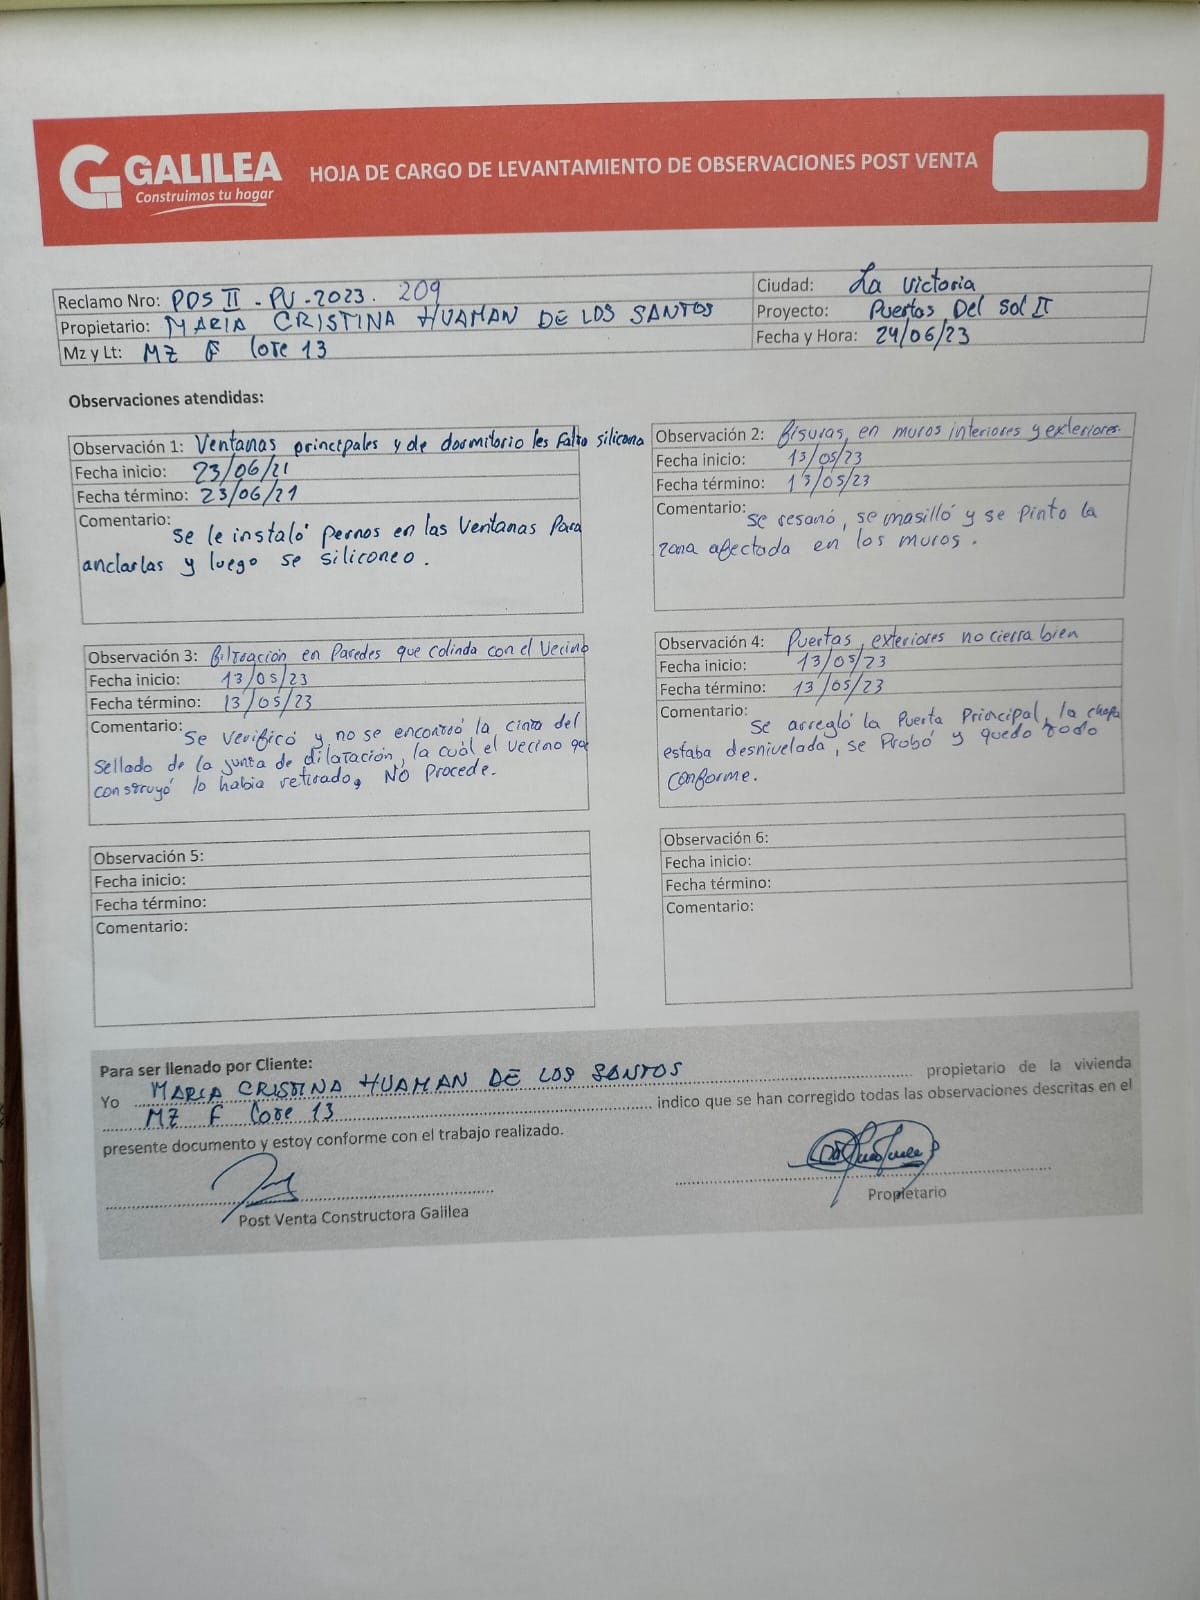 GALILEA
Construimos tu hogar
HOJA DE CARGO DE LEVANTAMIENTO DE OBSERVACIONES POST VENTA
Reclamo Nro: PDS II - PV - 2023. 209
Propietario: MARIA CRISTINA HUAMAN DE LOS SANTOS
Mz y Lt: MZ F lote 13
Ciudad: La victoria
Proyecto: Puertas Del Sol II
Fecha y Hora: 24/06/23
Observaciones atendidas:
Observación 1: Ventanas principales y de dormitorio les falto silicona
Fecha inicio: 23/06/21
Fecha término: 23/06/21
Comentario: se le instaló pernos en las Ventanas Para
anclarlas y luego se siliconeo.
Observación 2: fisuras, en muros interiores y exteriores.
Fecha inicio: 13/05/23
Fecha término: 13/05/23
Comentario: se resanó, se masilló y se pinto la
zona afectada en los muros.
Observación 3: filtración en Paredes que colinda con el Vecino
Fecha inicio: 13/05/23
Fecha término: 13/05/23
Comentario: Se verificó y no se encontró la cinta del
sellado de la junta de dilatación, la cuàl el vecino que
construyó lo habia retirado, NO Procede.
Observación 4: Puertas, exteriores no cierra bien
Fecha inicio: 13/05/23
Fecha término: 13/05/23
Comentario: Se arregló la Puerta Principal, la chapa
estaba desnivelada, se Probó y quedo todo
conforme.
Observación 5:
Fecha inicio:
Fecha término:
Comentario:
Observación 6:
Fecha inicio:
Fecha término:
Comentario:
Para ser llenado por Cliente:
Yo MARIA CRISTINA HUAMAN DE LOS SANTOS propietario de la vivienda
MZ F lote 13 indico que se han corregido todas las observaciones descritas en el
presente documento y estoy conforme con el trabajo realizado.
Post Venta Constructora Galilea
Propietario